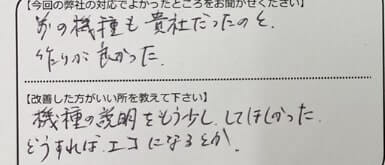 【今回の弊社の対応でよかったところをお聞かせください】
前の機種も貴社だったのと、
作りが良かった。
【改善した方がいい所を教えて下さい】
機種の説明をもう少し、してほしかった。
どうすれば、エコになるとか。